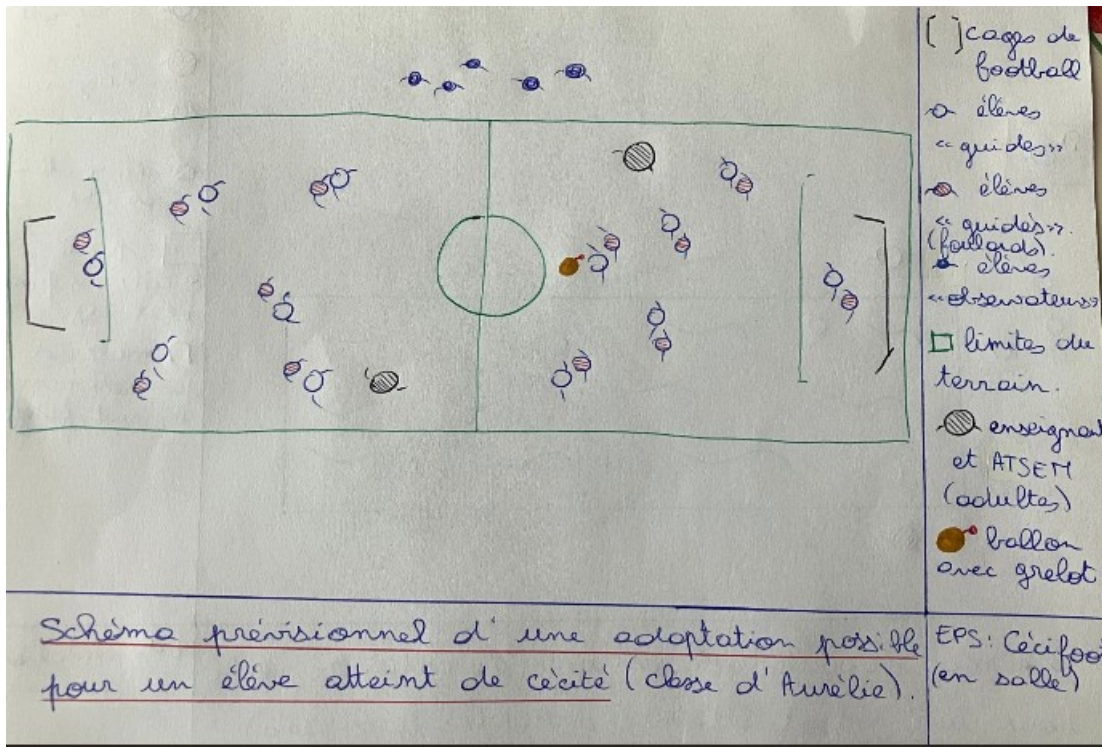 cages de
football
élèves
"guides"
élèves
"guidés".
(foulards).
élèves
"observateurs"
limites du
terrain.
enseignant
et ATSEM
(adultes)
ballon
avec grelot
Schéma prévisionnel d'une adaptation possible
pour un élève atteint de cécité (classe d'Aurélie).
EPS: Cécifoo
(en salle)